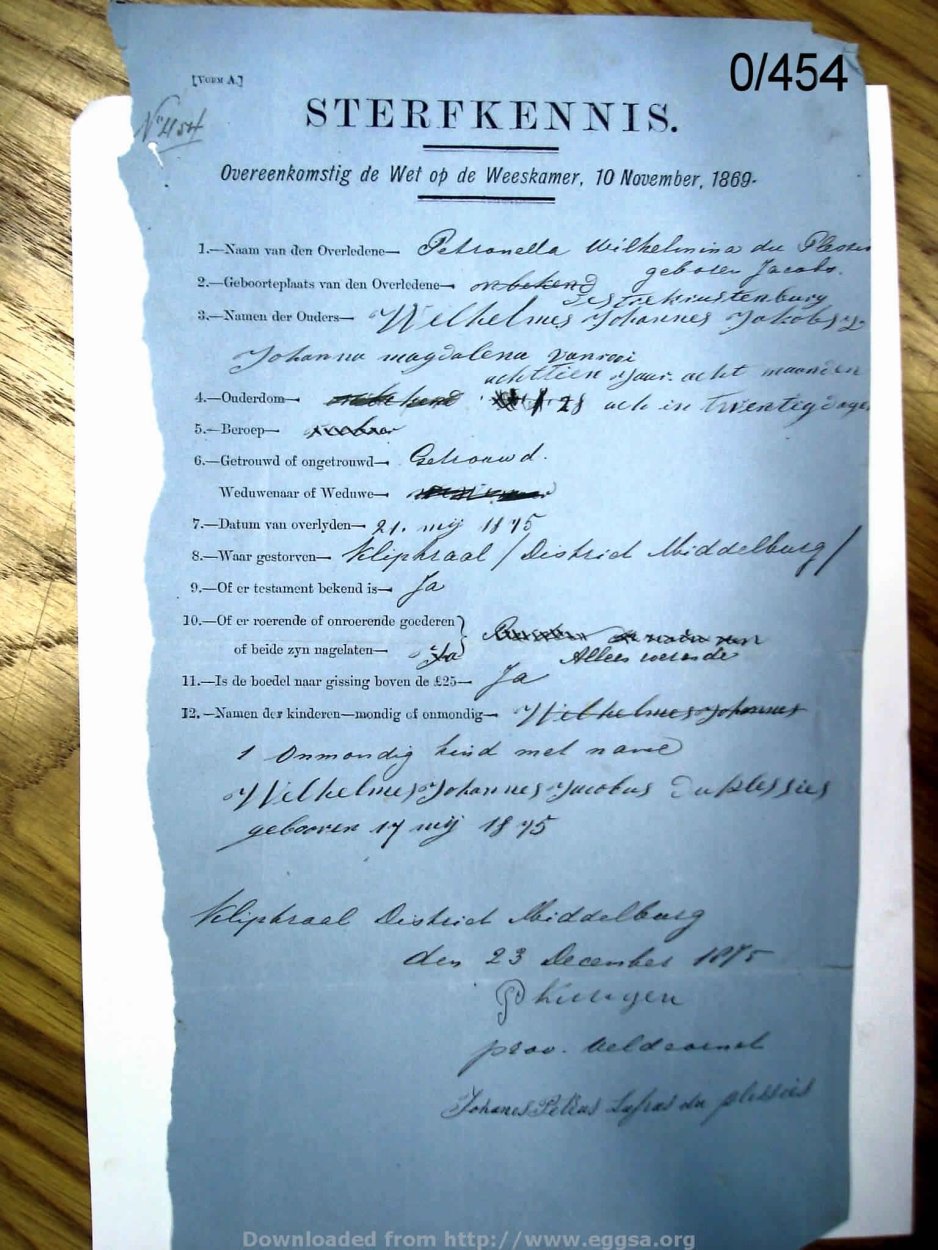 0/454
[VORM A.]
No 454
STERFKENNIS.
Overeenkomstig de Wet op de Weeskamer, 10 November, 1869.
1.—Naam van den Overledene— Petronella Wilhelmina du Plessis
geboren Jacobs.
2.—Geboorteplaats van den Overledene— onbekend
Destrek rustenburg
3.—Namen der Ouders— Wilhelmes Johannes Jakobs &
Johanna magdalena vanrooi
achttien jaar acht maanden
4.—Ouderdom— onbekend 28 ach in twentig dage
5.—Beroep—
6.—Getrouwd of ongetrouwd— Getrouwd.
Weduwenaar of Weduwe—
7.—Datum van overlyden— 21. mij 1875
8.—Waar gestorven— Klipkraal / District Middelburg /
9.—Of er testament bekend is— Ja
10.—Of er roerende of onroerende goederen
of beide zyn nagelaten— Ja Allees roerende
11.—Is de boedel naar gissing boven de £25— Ja
12.—Namen der kinderen—mondig of onmondig— Wilhelmes Johannes
1 Onmondig kind met name
Wilhelmes Johannes Jacobus duplessies
gebooren 17 mij 1875
Klipkraal District Middelburg
den 23 December 1875
prov. veldcornet
Johanes Petrus du plessies
Downloaded from http://www.eggsa.org